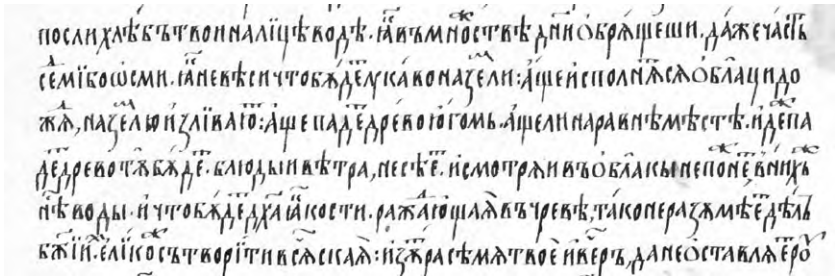 посли хлѣбъ твои налїцѣ водѣ. ꙗ҆́ въмноствѣ дни ѡбрѧщеши. даже часть
семїю и ѡсми. ꙗ҆́ не вѣси что бѫде лꙋкаво на земли: а҆́ще и҆сполнѧ́сѧ ѡблаци до
жѧ̀, на зе́лю и҆зʼлїваю: а҆́ще паде́ древо ю҆гомь. а҆́ще ли на равнѣ мѣстѣ. и҆де па
де́ древо тѫ бѫде. блюды и вѣтра, не сѣе. и҆ смотрѧи въ ѡблакы не поне. в них
нѣ воды. и҆ что бѫде дꙋ́ха ꙗ҆́кости. ражаю̀щаѧ̀ въ чревѣ, тако не разꙋмѣе́ дѣль
бж҃їи. е҆лїко сътвори́ ти всѧ́скаѧ̀: и҆зꙋ́тра сѣ мѧ твоѐ и҆ ве́ръ, да не ѡ҆ставлѧ́е рꙋ